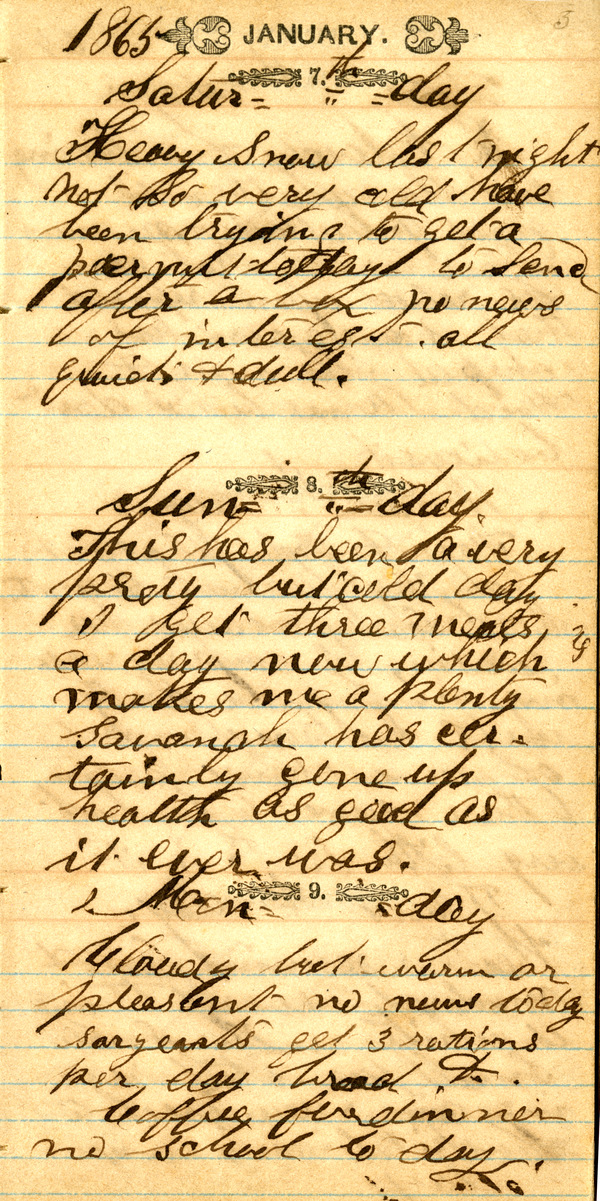 3
1865 JANUARY.
7.
Satur= th =day
Heavy snow last night
not so very cold have
been trying to get a
permit to day to send
after a box no news
of interest. all
quiet & dull.
8.
Sun= th =day.
This has been a very
prety but cold day
I get three meals
a day now which
makes me a plenty
Savanah has cer-
tainly gone up
health as good as
it ever was.
9.
Mon= =day
Cloudy but warm or
pleasant no news today
sargeants get 3 rations
per day bread &
Coffee for dinner
no school to day.